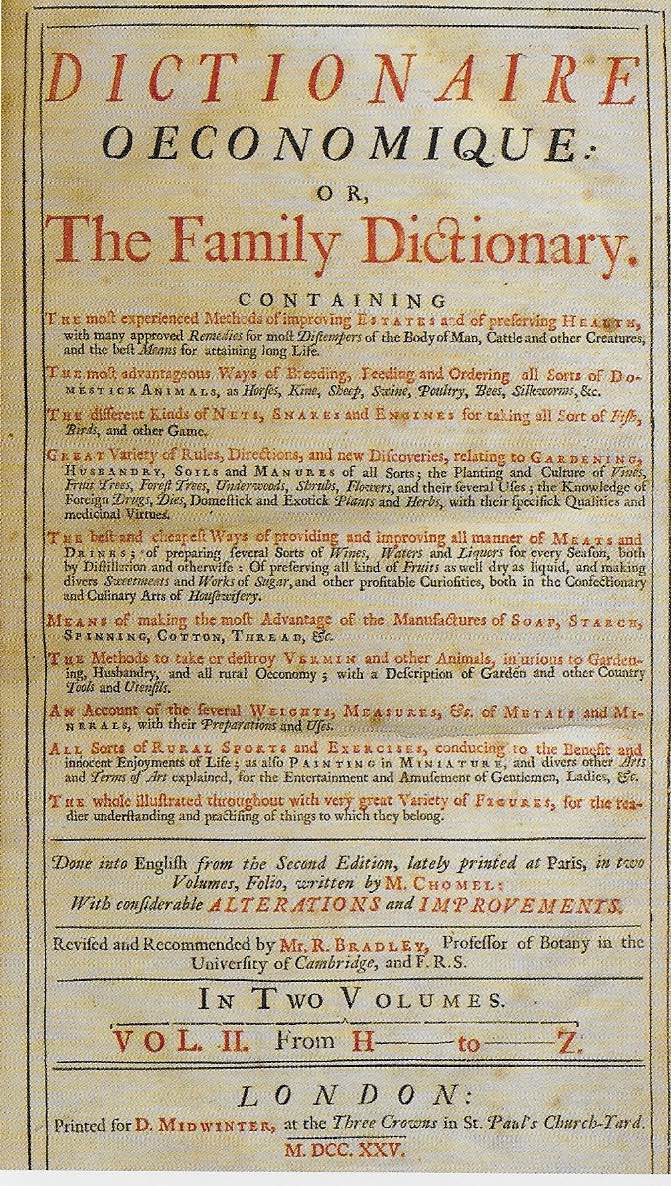 DICTIONAIRE
OECONOMIQUE:
OR,
The Family Dictionary.
CONTAINING
THE moſt experienced Methods of improving ESTATES and of preſerving HEALTH,
with many approved Remedies for moſt Diſtempers of the Body of Man, Cattle and other Creatures,
and the beſt Means for attaining long Life.
THE moſt advantageous Ways of Breeding, Feeding and Ordering all Sorts of DO-
MESTICK ANIMALS, as Horſes, Kine, Sheep, Swine, Poultry, Bees, Silkworms, &c.
THE different Kinds of NETS, SNARES and ENGINES for taking all Sort of Fiſh,
Birds, and other Game.
GREAT Variety of Rules, Directions, and new Diſcoveries, relating to GARDENING,
HUSBANDRY, SOILS and MANURES of all Sorts; the Planting and Culture of Vines,
Fruit Trees, Foreſt Trees, Underwoods, Shrubs, Flowers, and their ſeveral Uſes; the Knowledge of
Foreign Drugs, Dies, Domeſtick and Exotick Plants and Herbs, with their ſpecifick Qualities and
medicinal Virtues.
THE beſt and cheapeſt Ways of providing and improving all manner of MEATS and
DRINKS; of preparing ſeveral Sorts of Wines, Waters and Liquors for every Seaſon, both
by Diſtillation and otherwiſe: Of preſerving all kind of Fruits as well dry as liquid, and making
divers Sweetments and Works of Sugar, and other profitable Curioſities, both in the Confectionary
and Culinary Arts of Houſewifery.
MEANS of making the moſt Advantage of the Manufactures of SOAP, STARCH,
SPINNING, COTTON, THREAD, &c.
THE Methods to take or deſtroy VERMIN and other Animals, injurious to Garden-
ing, Husbandry, and all rural Oeconomy; with a Deſcription of Garden and other Country
Tools and Utenſils.
AN Account of the ſeveral WEIGHTS, MEASURES, &c. of METALS and MI-
NERALS, with their Preparations and Uſes.
ALL Sorts of RURAL SPORTS and EXERCISES, conducing to the Benefit and
innocent Enjoyments of Life; as alſo PAINTING in MINIATURE, and divers other Arts
and Terms of Art explained, for the Entertainment and Amuſement of Gentlemen, Ladies, &c.
THE whole illuſtrated throughout with very great Variety of FIGURES, for the rea-
dier underſtanding and practiſing of things to which they belong.
Done into Engliſh from the Second Edition, lately printed at Paris, in two
Volumes, Folio, written by M. CHOMEL:
With conſiderable ALTERATIONS and IMPROVEMENTS.
Reviſed and Recommended by Mr. R. BRADLEY, Profeſſor of Botany in the
Univerſity of Cambridge, and F. R. S.
IN TWO VOLUMES.
VOL. II. From H—to—Z.
LONDON:
Printed for D. MIDWINTER, at the Three Crowns in St. Paul's Church-Yard.
M. DCC. XXV.